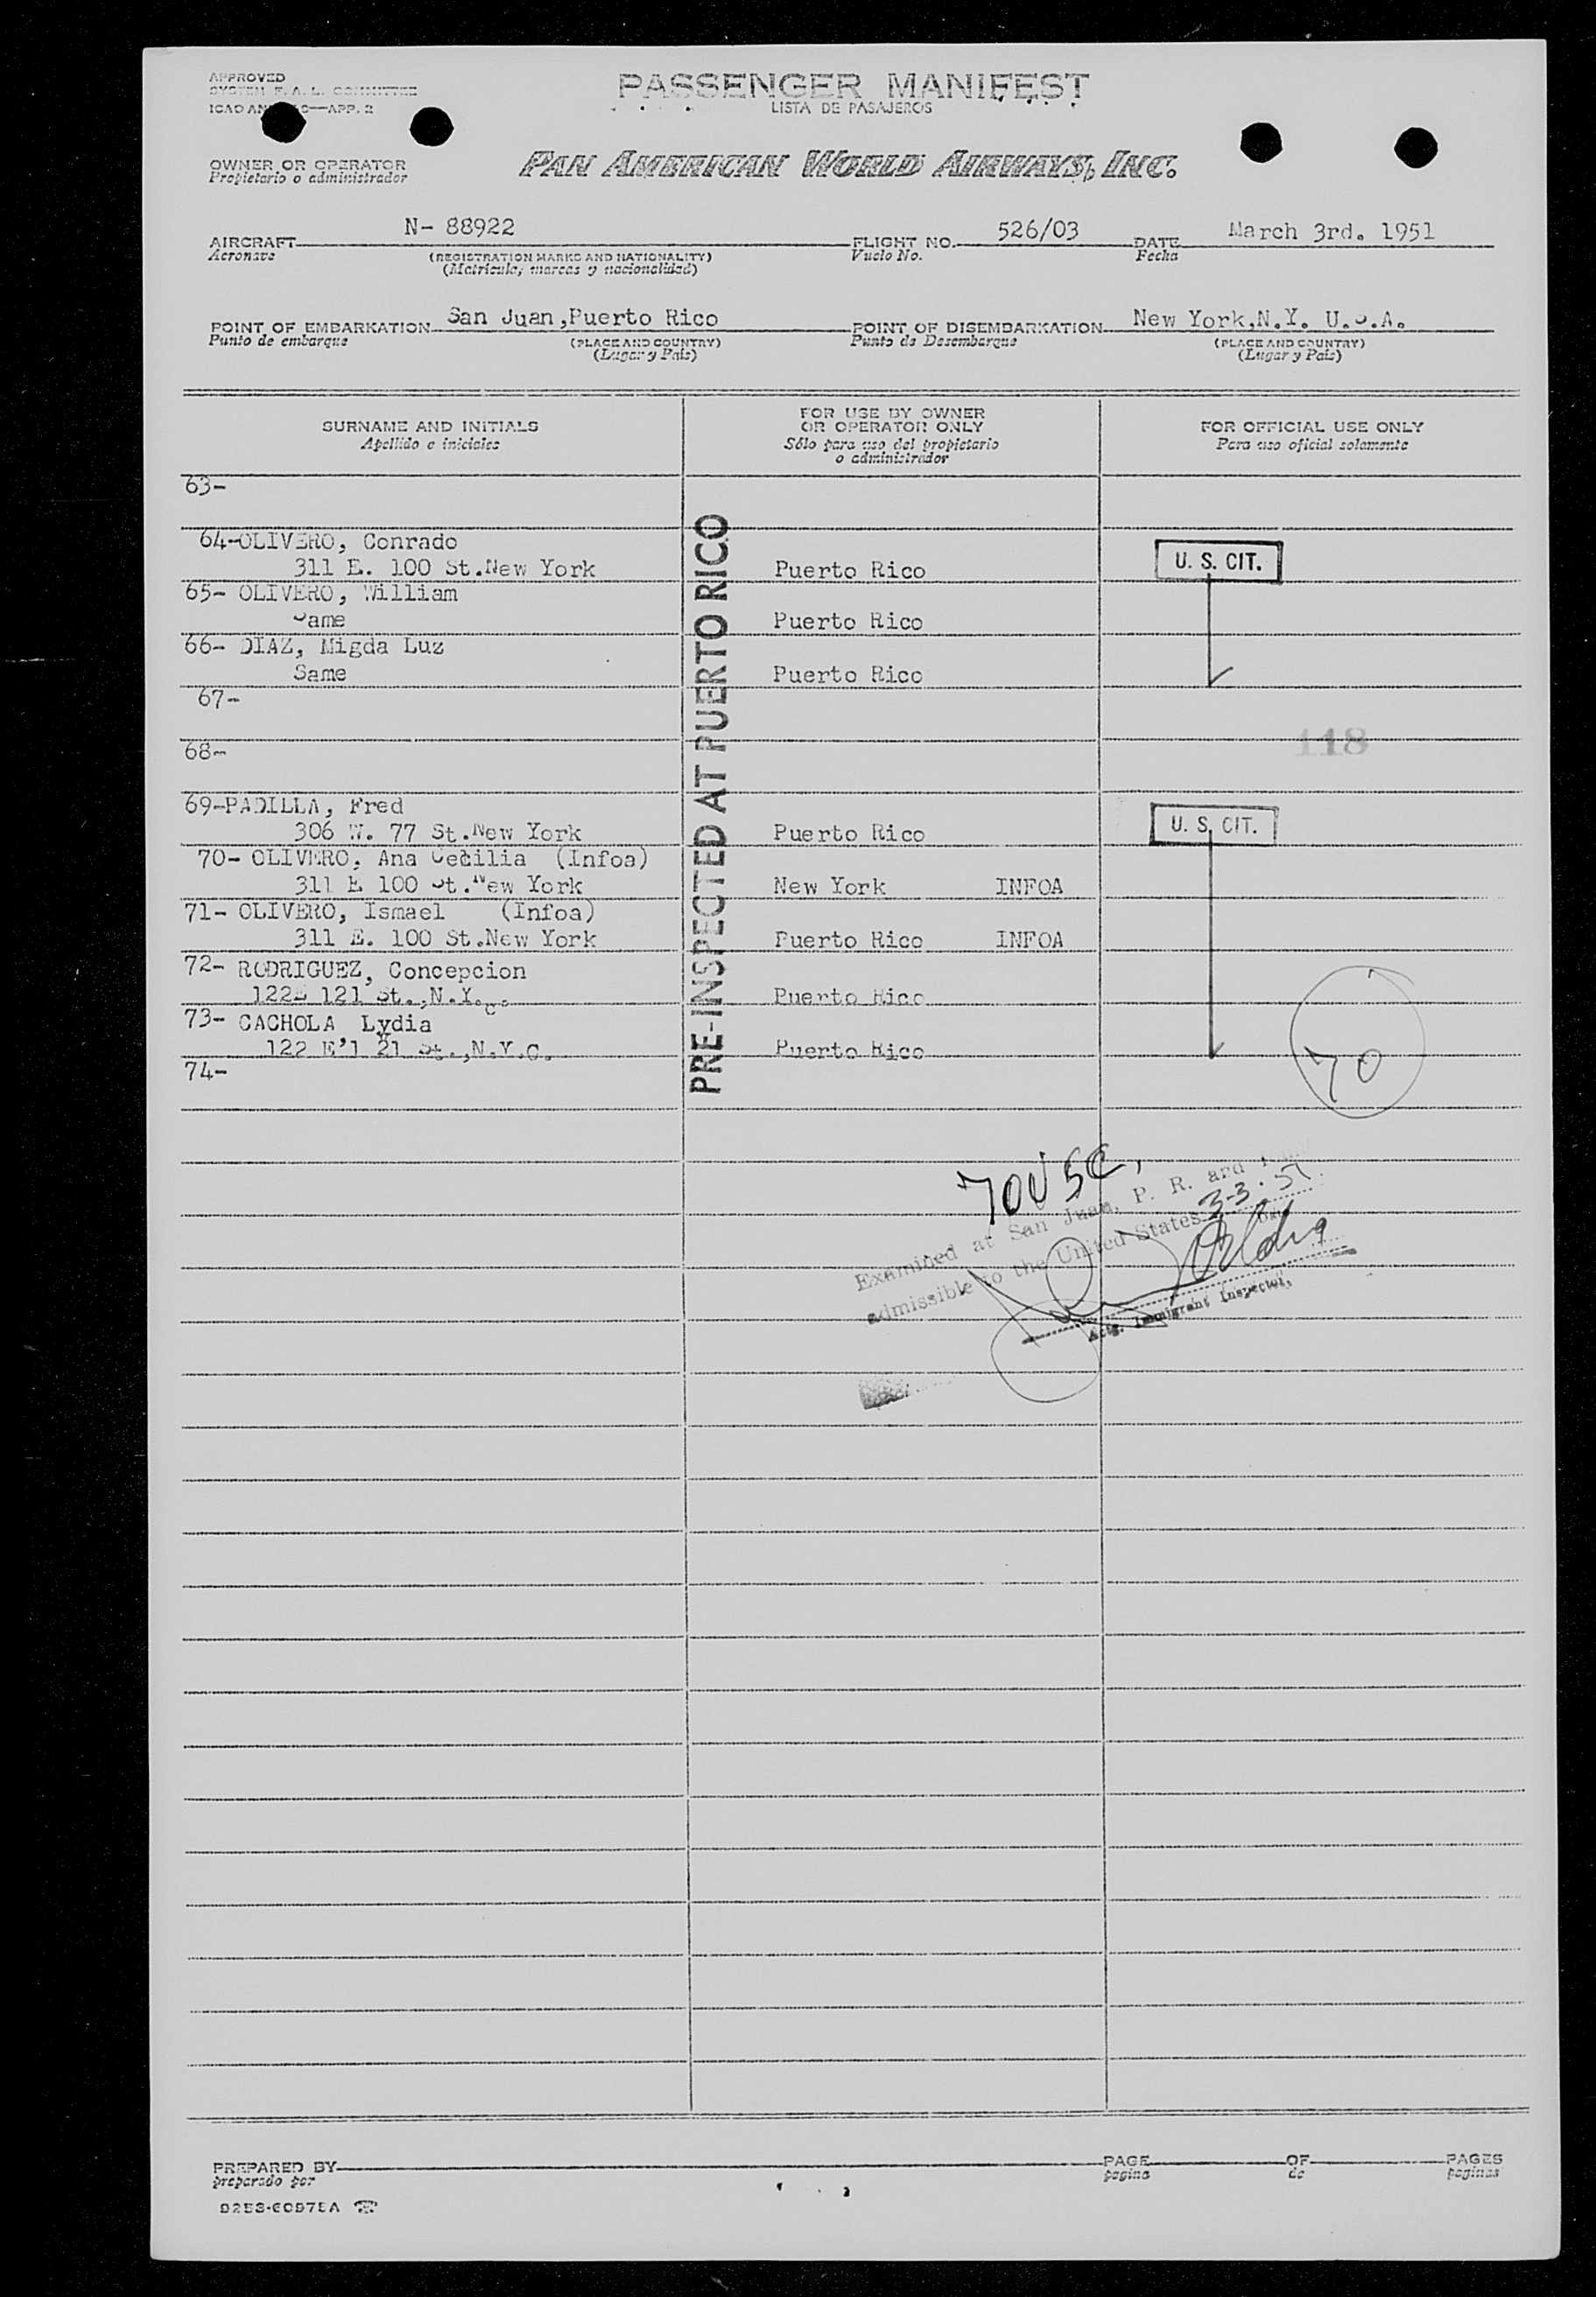 APPROVED
SYSTEM F. A. L. COMMITTEE
ICAO —APP. 2
PASSENGER MANIFEST
LISTA DE PASAJEROS
OWNER OR OPERATOR
Propietario o administrador
PAN AMERICAN WORLD AIRWAYS, INC.
AIRCRAFT N- 88922 FLIGHT NO. 526/03 DATE March 3rd. 1951
Aeronave (REGISTRATION MARKS AND NATIONALITY) Vuelo No. Fecha
(Matrícula, marcas y nacionalidad)
POINT OF EMBARKATION San Juan,Puerto Rico POINT OF DISEMBARKATION New York,N.Y. U.S.A.
Punto de embarque (PLACE AND COUNTRY) Punto de Desembarque (PLACE AND COUNTRY)
(Lugar y País) (Lugar y País)
SURNAME AND INITIALS FOR USE BY OWNER FOR OFFICIAL USE ONLY
OR OPERATOR ONLY
Apellido e iniciales Sólo para uso del propietario Para uso oficial solamente
o administrador
PRE-INSPECTED AT PUERTO RICO
63-
64-OLIVERO, Conrado
311 E. 100 St.New York Puerto Rico U. S. CIT.
65- OLIVERO, William
Same Puerto Rico
66- DIAZ, Migda Luz
Same Puerto Rico
67-
68- 118
69-PADILLA, Fred
306 W. 77 St.New York Puerto Rico U. S. CIT.
70- OLIVERO, Ana Cecilia (Infoa)
311 E 100 St.New York New York INFOA
71- OLIVERO, Ismael (Infoa)
311 E. 100 St.New York Puerto Rico INFOA
72- RODRIGUEZ, Concepcion
122E 121 St.,N.Y.C. Puerto Rico
73- CACHOLA Lydia
122 E'1 21 St.,N.Y.C. Puerto Rico
70
74-
70 USC,
Examined at San Juan, P. R. and
admissible to the United States 3-3-51
Actg. Immigrant Inspector,
PREPARED BY PAGE OF PAGES
preparado por pagina de paginas